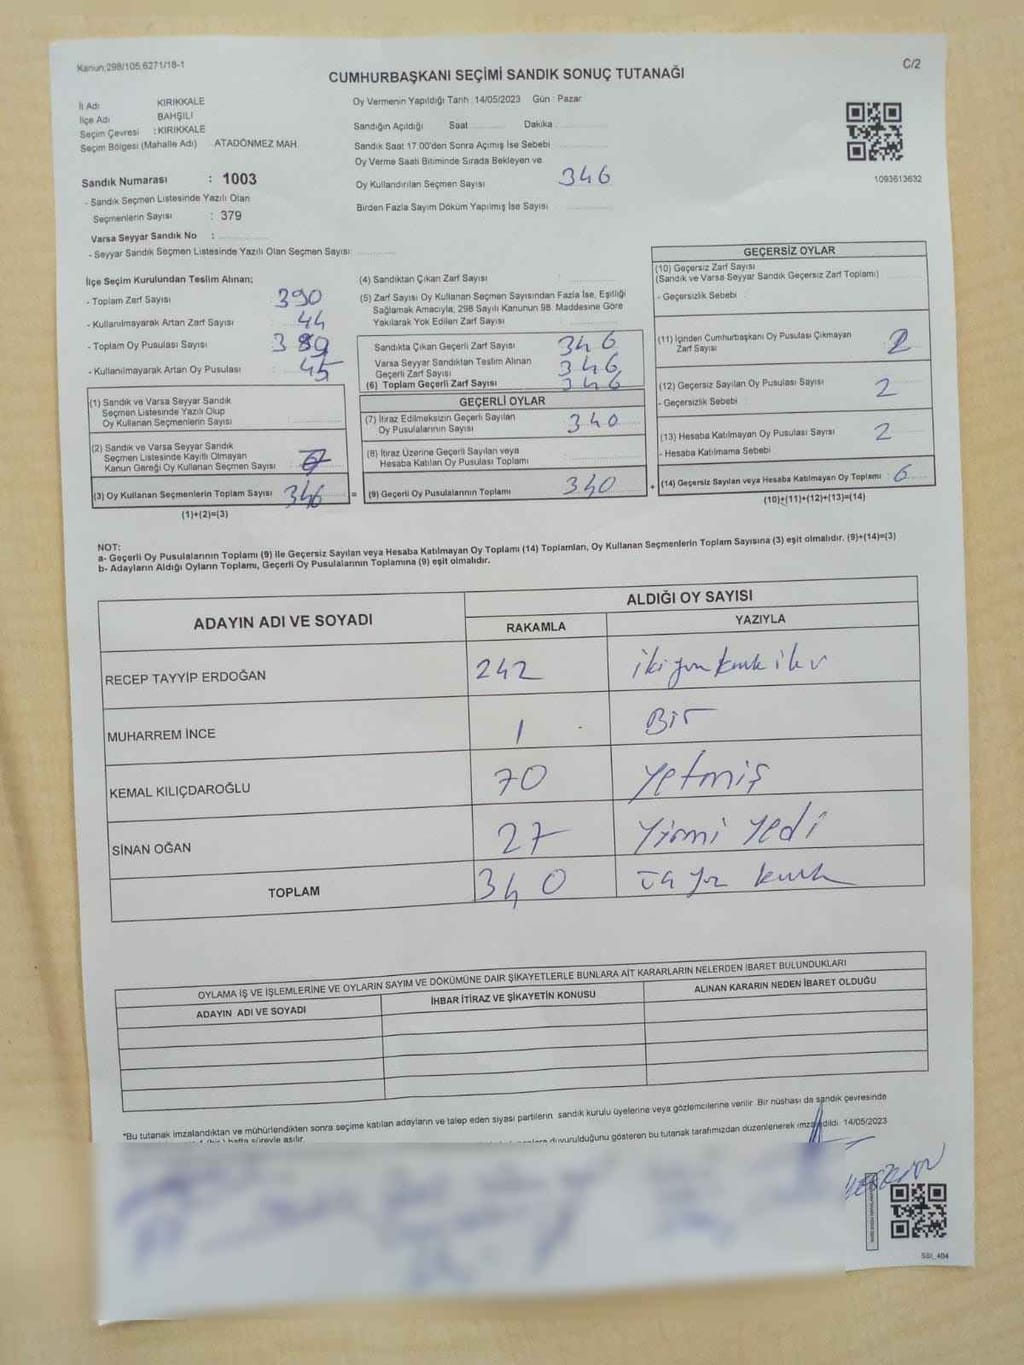 Kanun,298/105,6271/18-1
C/2
CUMHURBAŞKANI SEÇİMİ SANDIK SONUÇ TUTANAĞI
İl Adı KIRIKKALE
İlçe Adı BAHŞILI
Seçim Çevresi : KIRIKKALE
Seçim Bölgesi (Mahalle Adı) ATADÖNMEZ MAH.
Oy Vermenin Yapıldığı Tarih : 14/05/2023 Gün : Pazar
Sandığın Açıldığı Saat Dakika
Sandık Saat 17.00'den Sonra Açımış İse Sebebi
Oy Verme Saati Bitiminde Sırada Bekleyen ve
Oy Kullandırılan Seçmen Sayısı 346
Birden Fazla Sayım Döküm Yapılmış İse Sayısı
1093613632
Sandık Numarası : 1003
- Sandık Seçmen Listesinde Yazılı Olan
Seçmenlerin Sayısı : 379
Varsa Seyyar Sandık No :
- Seyyar Sandık Seçmen Listesinde Yazılı Olan Seçmen Sayısı:
İlçe Seçim Kurulundan Teslim Alınan;
- Toplam Zarf Sayısı 390
- Kullanılmayarak Artan Zarf Sayısı 44
- Toplam Oy Pusulası Sayısı 389
- Kullanılmayarak Artan Oy Pusulası 45
(1) Sandık ve Varsa Seyyar Sandık
Seçmen Listesinde Yazılı Olup
Oy Kullanan Seçmenlerin Sayısı
(2) Sandık ve Varsa Seyyar Sandık
Seçmen Listesinde Kayıtlı Olmayan
Kanun Gereği Oy Kullanan Seçmen Sayısı
(3) Oy Kullanan Seçmenlerin Toplam Sayısı 346
(1)+(2)=(3)
(4) Sandıktan Çıkan Zarf Sayısı
(5) Zarf Sayısı Oy Kullanan Seçmen Sayısından Fazla İse, Eşitliği
Sağlamak Amacıyla, 298 Sayılı Kanunun 98. Maddesine Göre
Yakılarak Yok Edilen Zarf Sayısı
Sandıkta Çıkan Geçerli Zarf Sayısı 346
Varsa Seyyar Sandıktan Teslim Alınan
Geçerli Zarf Sayısı 346
(6) Toplam Geçerli Zarf Sayısı 346
GEÇERLİ OYLAR
(7) İtiraz Edilmeksizin Geçerli Sayılan
Oy Pusulalarının Sayısı 340
(8) İtiraz Üzerine Geçerli Sayılan veya
Hesaba Katılan Oy Pusulası Toplamı
= (9) Geçerli Oy Pusulalarının Toplamı 340 +
GEÇERSİZ OYLAR
(10) Geçersiz Zarf Sayısı
(Sandık ve Varsa Seyyar Sandık Geçersiz Zarf Toplamı)
- Geçersizlik Sebebi
(11) İçinden Cumhurbaşkanı Oy Pusulası Çıkmayan
Zarf Sayısı 2
(12) Geçersiz Sayılan Oy Pusulası Sayısı 2
- Geçersizlik Sebebi
(13) Hesaba Katılmayan Oy Pusulası Sayısı 2
- Hesaba Katılmama Sebebi
(14) Geçersiz Sayılan veya Hesaba Katılmayan Oy Toplamı 6
(10)+(11)+(12)+(13)=(14)
NOT:
a- Geçerli Oy Pusulalarının Toplamı (9) ile Geçersiz Sayılan veya Hesaba Katılmayan Oy Toplamı (14) Toplamları, Oy Kullanan Seçmenlerin Toplam Sayısına (3) eşit olmalıdır. (9)+(14)=(3)
b- Adayların Aldığı Oyların Toplamı, Geçerli Oy Pusulalarının Toplamına (9) eşit olmalıdır.
ADAYIN ADI VE SOYADI
ALDIĞI OY SAYISI
RAKAMLA YAZIYLA
RECEP TAYYİP ERDOĞAN 242 iki yüz kırk iki
MUHARREM İNCE 1 Bir
KEMAL KILIÇDAROĞLU 70 Yetmiş
SİNAN OĞAN 27 Yirmi Yedi
TOPLAM 340 üç yüz kırk
OYLAMA İŞ VE İŞLEMLERİNE VE OYLARIN SAYIM VE DÖKÜMÜNE DAİR ŞİKAYETLERLE BUNLARA AİT KARARLARIN NELERDEN İBARET BULUNDUKLARI
ADAYIN ADI VE SOYADI İHBAR İTİRAZ VE ŞİKAYETİN KONUSU ALINAN KARARIN NEDEN İBARET OLDUĞU
*Bu tutanak imzalandıktan ve mühürlendikten sonra seçime katılan adayların ve talep eden siyasi partilerin sandık kurulu üyelerine veya gözlemcilerine verilir. Bir nüshası da sandık çevresinde
hafta süreyle asılır. duyurulduğunu gösteren bu tutanak tarafımızdan düzenlenerek imza edildi. 14/05/2023
SSI_404